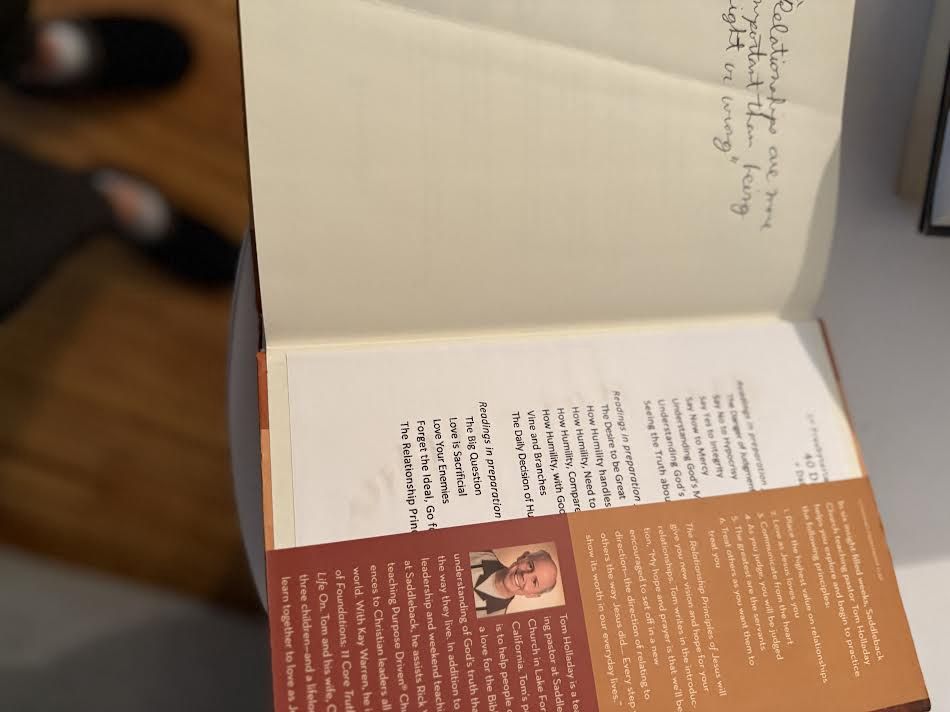 "Relationships are more
important than being
right or wrong"
40 D
Readings in preparation
The Danger of Judgment
Say No to Hypocrisy
Say Yes to Integrity
Say Now to Mercy
Understanding God's M
Understanding God's
Seeing the Truth abou
Readings in preparation
The Desire to be Great
How Humility handles
How Humility, Need to
How Humility, Compare
How Humility, with God
Vine and Branches
The Daily Decision of Hu
Readings in preparation
The Big Question
Love is Sacrificial
Love Your Enemies
Forget the Ideal, Go fo
The Relationship Prin
In six insight-filled weeks, Saddleback
Church teaching pastor Tom Holladay
helps you explore and begin to practice
the following principles:
1. Place the highest value on relationships
2. Love as Jesus loves you
3. Communicate from the heart
4. As you judge, you will be judged
5. The greatest are the servants
6. Treat others as you want them to
treat you
The Relationship Principles of Jesus will
give you new vision and hope for your
relationships. Tom writes in the introduc-
tion, "My hope and prayer is that we'll be
encouraged to set off in a new
direction—the direction of relating to
others the way Jesus did.... Every step
show its worth in our everyday lives."
Tom Holladay is a tea
ing pastor at Saddle
Church in Lake For
California. Tom's p
is to help people
a love for the Bib
understanding of God's truth tha
the way they live. In addition to
leadership and weekend teachi
at Saddleback, he assists Rick
teaching Purpose Driven® Chu
ences to Christian leaders all
world. With Kay Warren, he i
of Foundations: 11 Core Trut
Life On. Tom and his wife, C
three children—and a lifelo
learn together to love as J